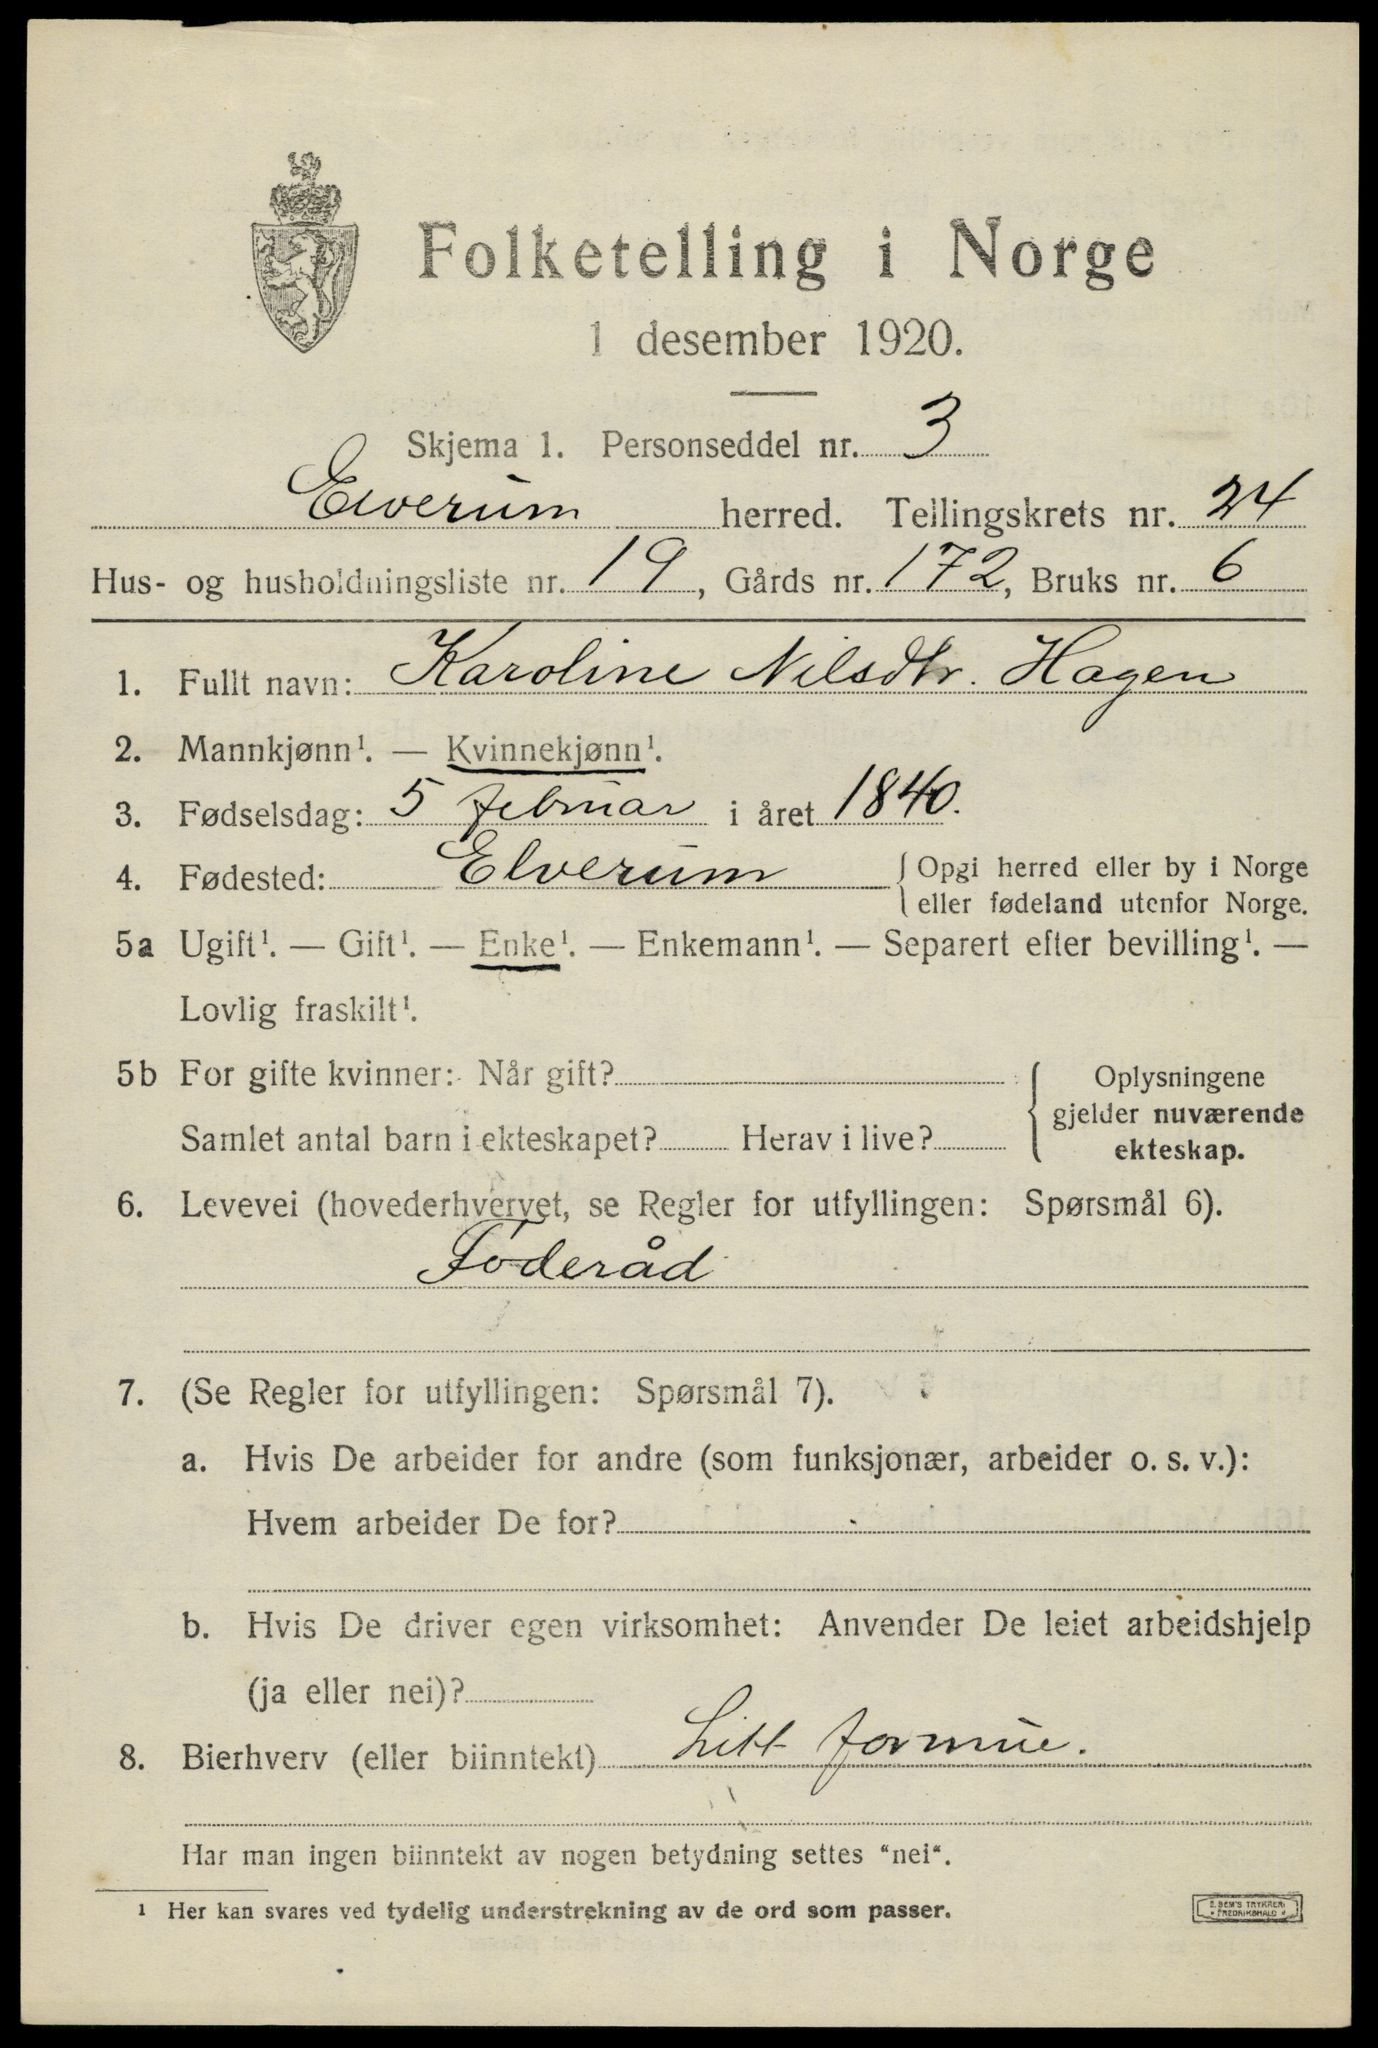 Folketelling i Norge
1 desember 1920.
Skjema 1. Personseddel nr. 3
Elverum herred. Tellingskrets nr. 24
Hus- og husholdningsliste nr. 19, Gårds nr. 172, Bruks nr. 6
1. Fullt navn: Karoline Nilsdtr. Hagen
2. Mannkjønn¹. — Kvinnekjønn¹.
3. Fødselsdag: 5 februar i året 1840.
4. Fødested: Elverum { Opgi herred eller by i Norge
eller fødeland utenfor Norge.
5a Ugift¹. — Gift¹. — Enke¹. — Enkemann¹. — Separert efter bevilling¹. —
Lovlig fraskilt¹.
5b For gifte kvinner: Når gift? Oplysningene
gjelder nuværende
Samlet antal barn i ekteskapet? Herav i live?
ekteskap.
6. Levevei (hovederhvervet, se Regler for utfyllingen: Spørsmål 6).
Föderåd
7. (Se Regler for utfyllingen: Spørsmål 7).
a. Hvis De arbeider for andre (som funksjonær, arbeider o. s. v.):
Hvem arbeider De for?
b. Hvis De driver egen virksomhet: Anvender De leiet arbeidshjelp
(ja eller nei)?
8. Bierhverv (eller biinntekt) Litt formue.
Har man ingen biinntekt av nogen betydning settes "nei".
¹ Her kan svares ved tydelig understrekning av de ord som passer.
E. SEM'S TRYKKERI
FREDRIKSHALD